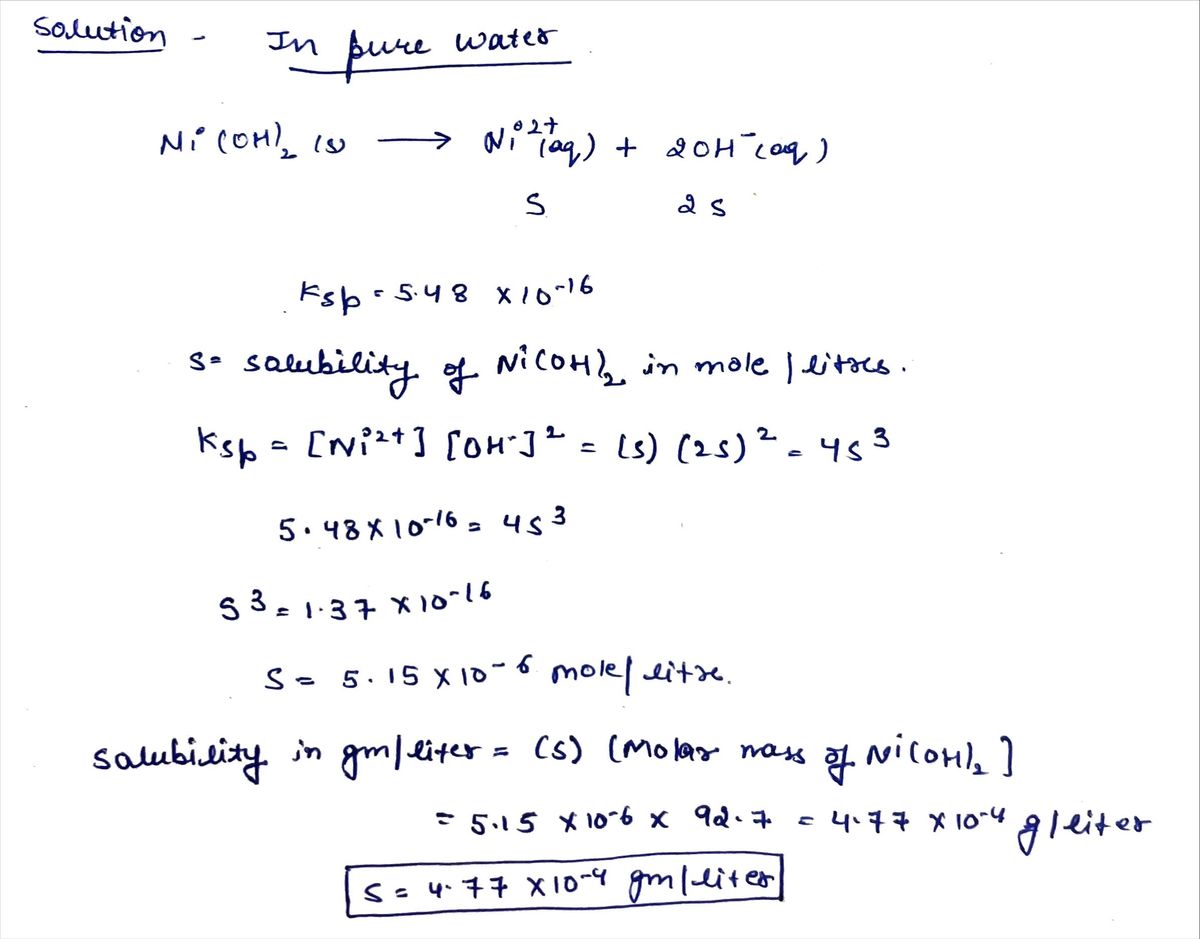 Solution - In pure water
Ni(OH)₂ (s) ⟶ Ni²⁺(aq) + 2OH⁻(aq)
S 2S
Ksp = 5.48 × 10⁻¹⁶
S = solubility of Ni(OH)₂ in mole / litres.
Ksp = [Ni²⁺] [OH⁻]² = (S) (2S)² = 4S³
5.48 × 10⁻¹⁶ = 4S³
S³ = 1.37 × 10⁻¹⁶
S = 5.15 × 10⁻⁶ mole/ litre.
Solubility in gm/liter = (S) (Molar mass of Ni(OH)₂]
= 5.15 × 10⁻⁶ × 92.7 = 4.77 × 10⁻⁴ g/liter
S = 4.77 × 10⁻⁴ gm/liter